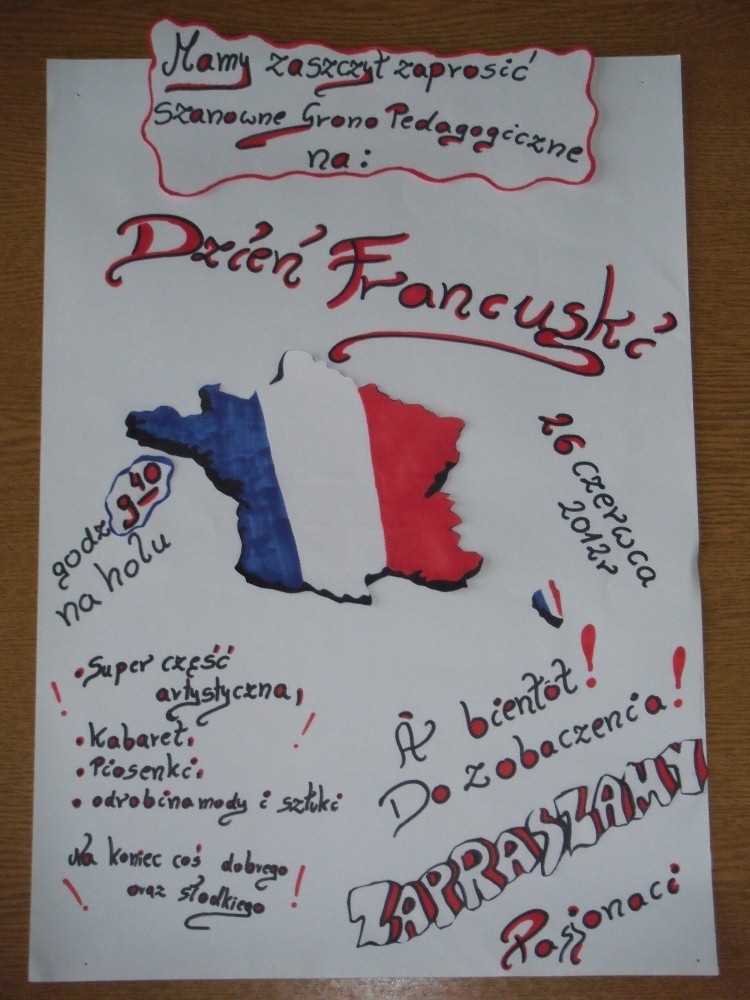 Mamy zaszczyt zaprosić
Szanowne Grono Pedagogiczne
na:
Dzień Francuski
godz 9 40
na holu
26 czerwca
2012r
• Super część
artystyczna,
• Kabaret.
• Piosenki.
• odrobina mody i sztuki
!
!
Na koniec coś dobrego
oraz słodkiego
!
!
À bientôt!
Do zobaczenia!
ZAPRASZAMY
Pasjonaci